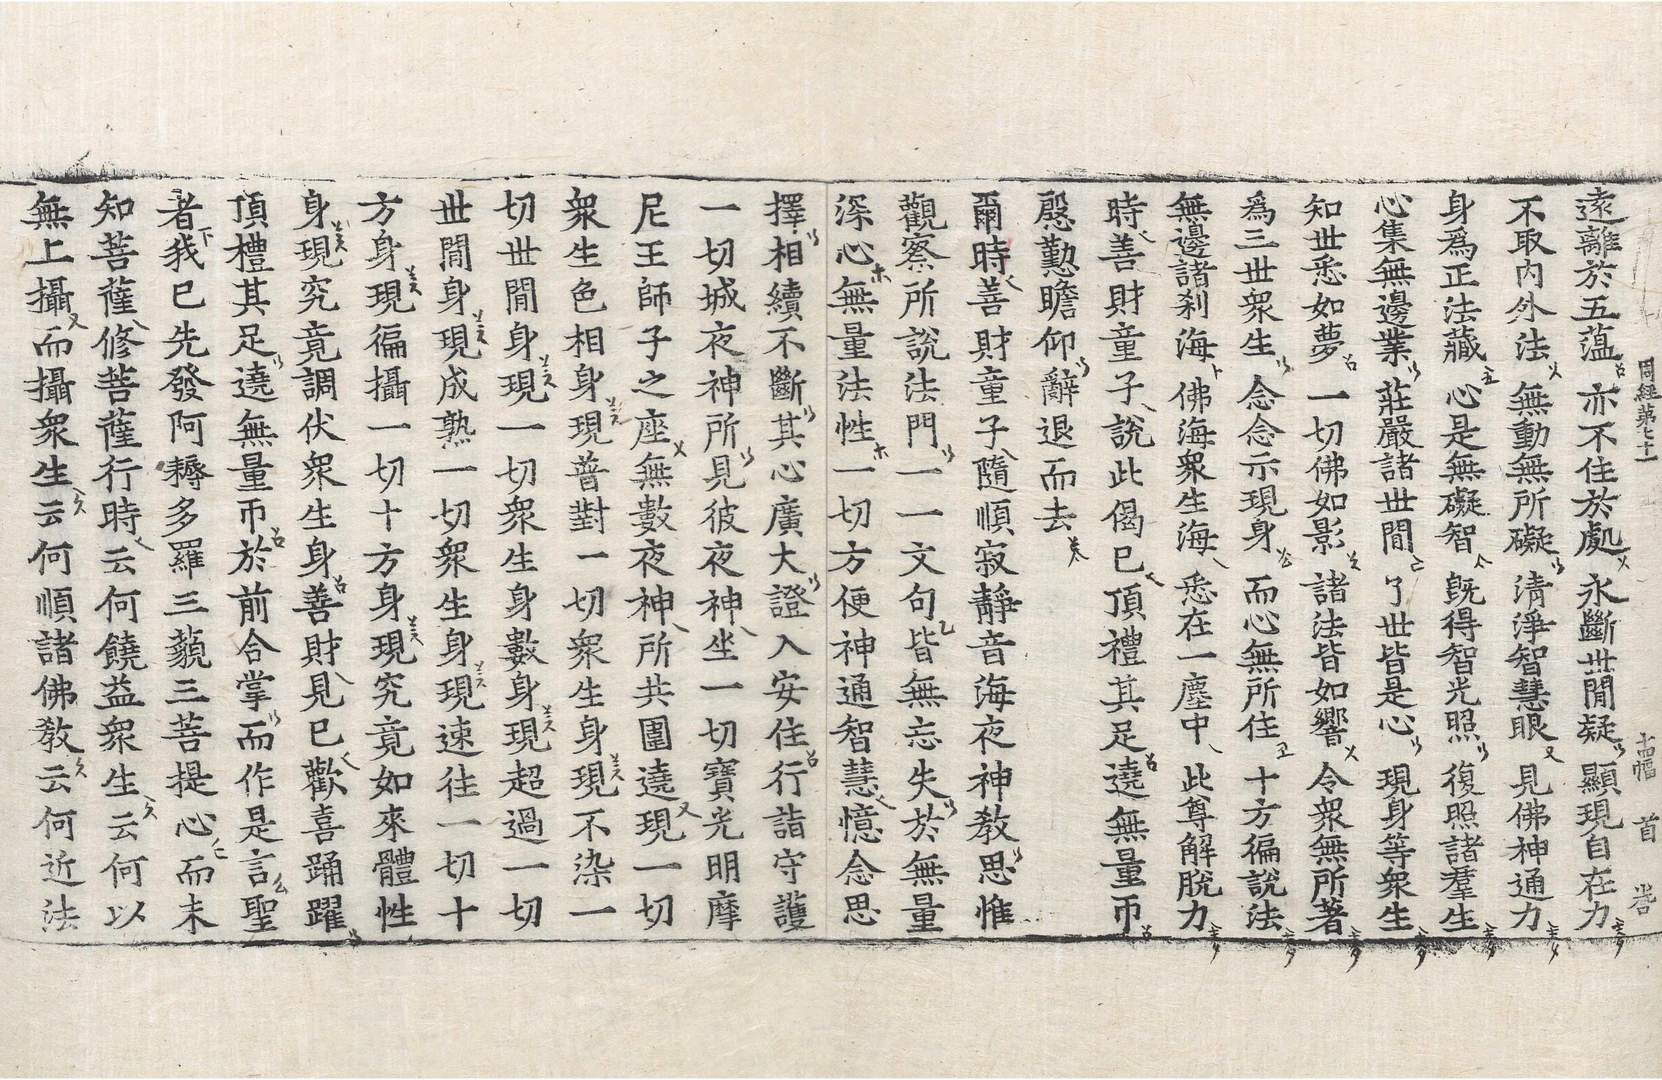 周經第七十一 十四幅 首
遠離於五蘊 亦不住於處 永斷世閒疑 顯現自在力
不取內外法 無動無所礙 清淨智慧眼 見佛神通力
身爲正法藏 心是無礙智 旣得智光照 復照諸羣生
心集無邊業 莊嚴諸世閒 了世皆是心 現身等衆生
知世悉如夢 一切佛如影 諸法皆如響 令衆無所著
爲三世衆生 念念示現身 而心無所住 十方徧說法
無邊諸刹海 佛海衆生海 悉在一塵中 此尊解脫力
時善財童子說此偈已頂禮其足遶無量帀
慇懃瞻仰辭退而去
爾時善財童子隨順寂靜音海夜神敎思惟
觀察所說法門一一文句皆無忘失於無量
深心無量法性一切方便神通智慧憶念思
擇相續不斷其心廣大證入安住行詣守護
一切城夜神所見彼夜神坐一切寶光明摩
尼王師子之座無數夜神所共圍遶現一切
衆生色相身現普對一切衆生身現不染一
切世閒身現一切衆生身數身現超過一切
世閒身現成熟一切衆生身現速往一切十
方身現徧攝一切十方身現究竟如來體性
身現究竟調伏衆生身善財見已歡喜踊躍
頂禮其足遶無量帀於前合掌而作是言聖
者我已先發阿耨多羅三藐三菩提心而未
知菩薩修菩薩行時云何饒益衆生云何以
無上攝而攝衆生云何順諸佛敎云何近法